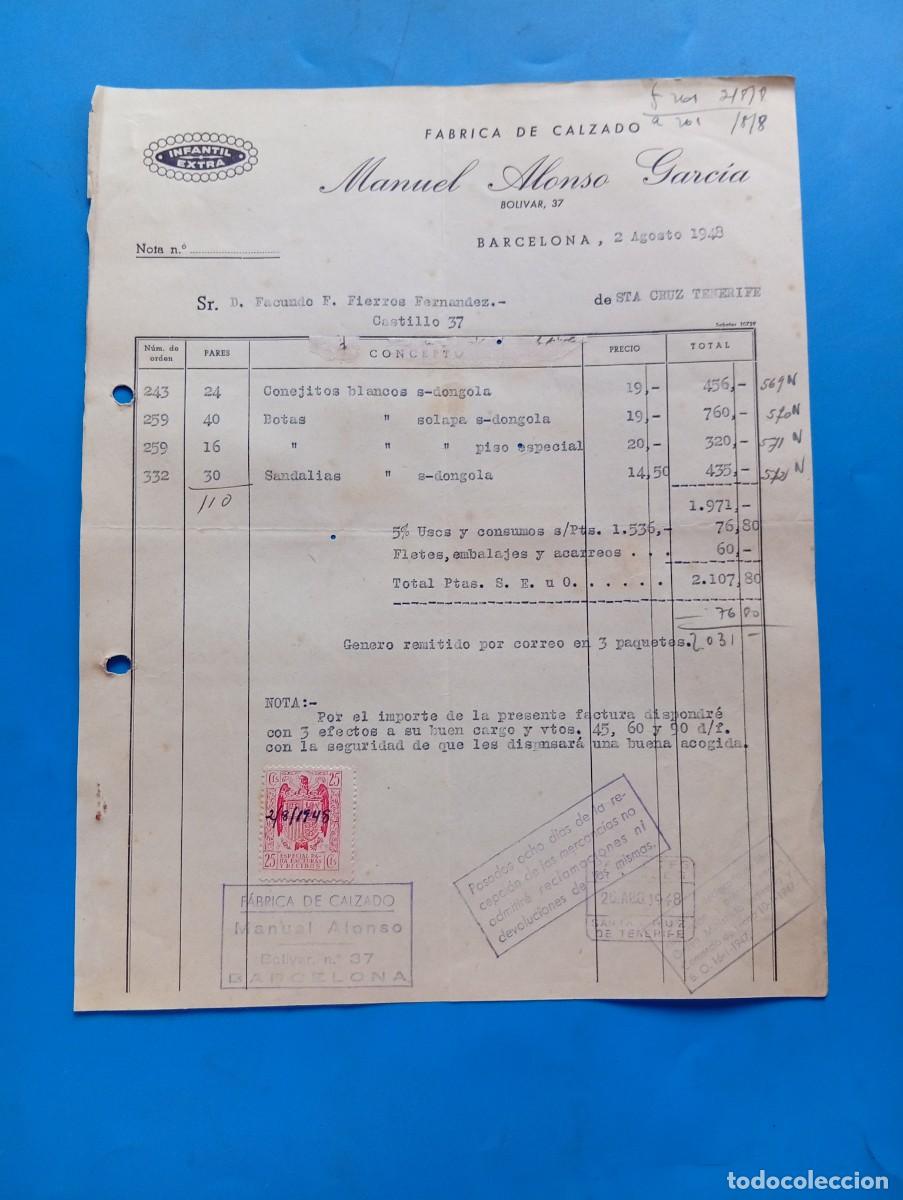 FABRICA DE CALZADO
INFANTIL
EXTRA
Manuel Alonso García
BOLIVAR, 37
Nota n.º
BARCELONA, 2 Agosto 1948
Sr. D. Facundo F. Fierros Fernandez.- de STA CRUZ TENERIFE
Castillo 37
Núm. de orden PARES CONCEPTO PRECIO TOTAL
243 24 Conejitos blancos s-dongola 19,- 456,- 569 N
259 40 Botas " solapa s-dongola 19,- 760,- 570 N
259 16 " " " piso especial 20,- 320,- 571 N
332 30 Sandalias " s-dongola 14,50 435,- N
110
1.971,-
5% Usos y consumos s/Pts. 1.536,- 76,80
Fletes,embalajes y acarreos . . . 60,-
Total Ptas. S. E. u O. . . . . . 2.107,80
76 80
Genero remitido por correo en 3 paquetes. 2031 -
NOTA:-
Por el importe de la presente factura dispondré
con 3 efectos a su buen cargo y vtos. 45, 60 y 90 d/f.
con la seguridad de que les dispnsará una buena acogida.
Cts 25
2/8/1948
ESPECIAL PA-
RA FACTURAS
Y RECIBOS
25 Cts
Pasados ocho días de la re-
cepción de las mercancías no
admitiré reclamaciones ni
devoluciones de las mismas.
FÁBRICA DE CALZADO
Manual Alonso
Bolivar, n.º 37
BARCELONA
AGO 1948
SANTA CRUZ
DE TENERIFE
B. O. 16-1-1947
todocoleccion